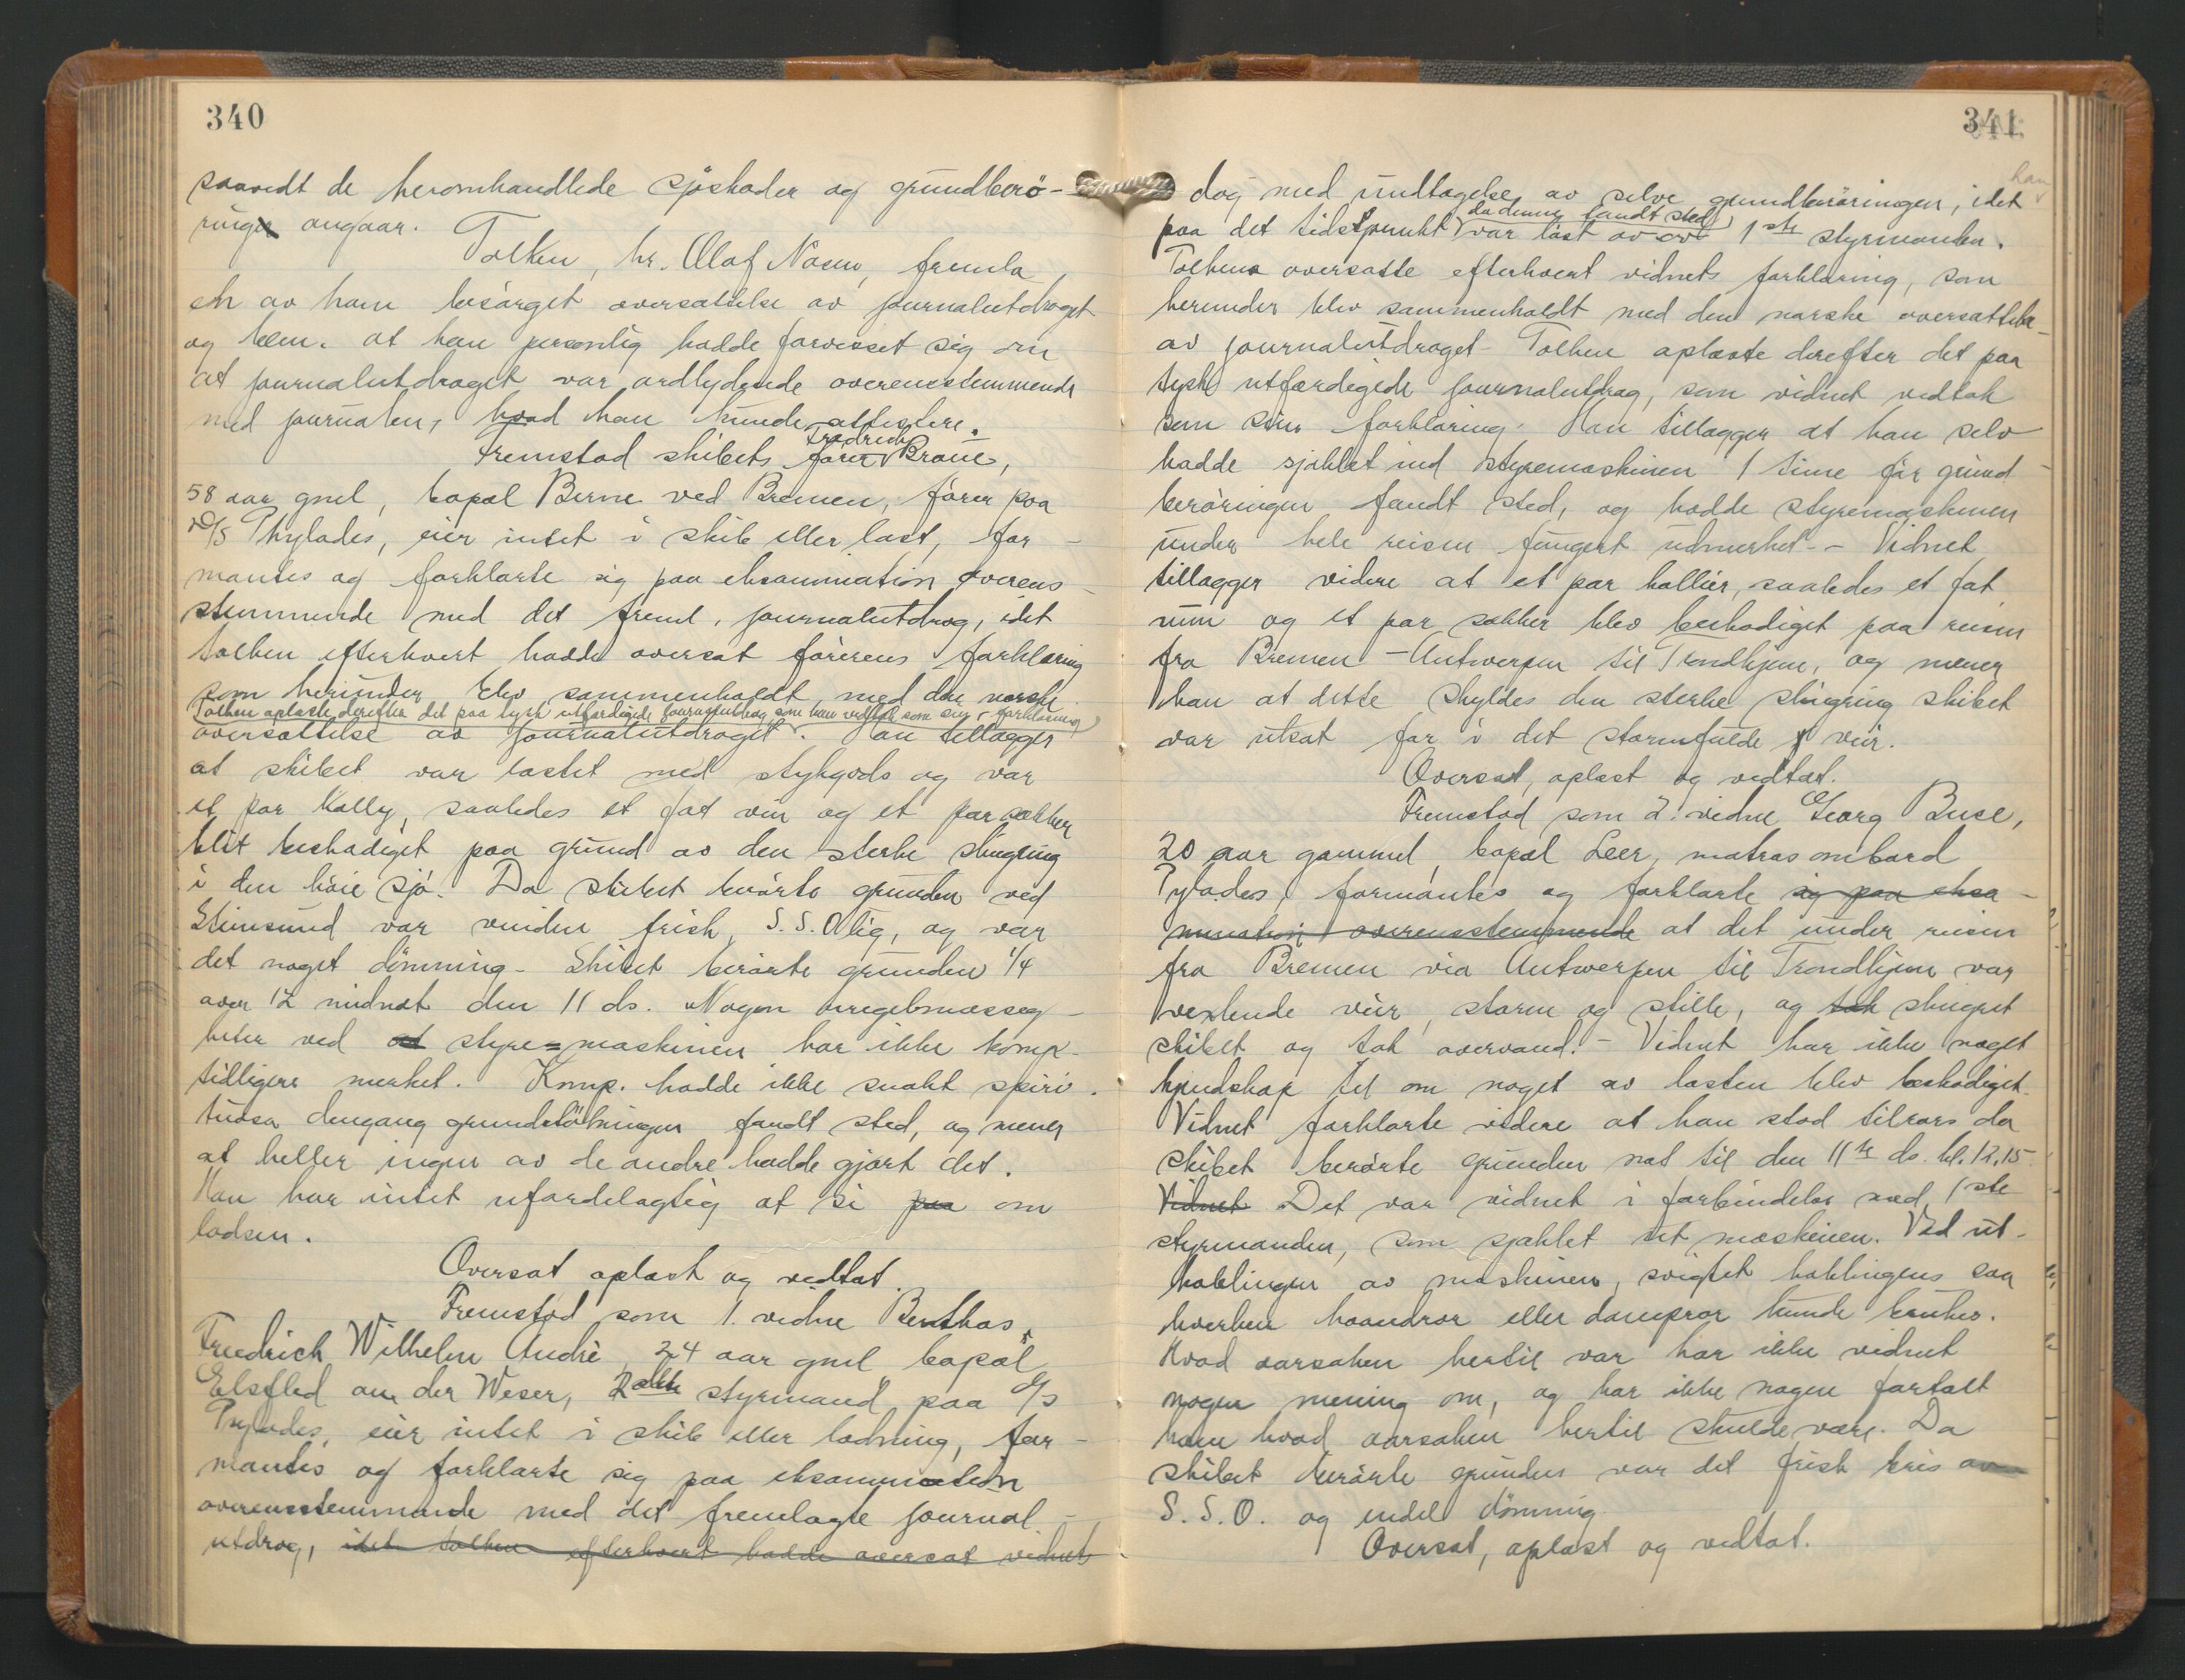 340
saavidt de heromhandlede sjøskader og grundberø-
ringer angaar.
Tolken, hr. Olaf Næsen, fremla
en av ham besørget oversættelse av journalutdraget
og bem. at han personlig hadde forvisset sig om
at journalutdraget var ordlydende overensstemmende
med journalen, hvad han kunde attestere.
Fredrich
Fremstod skibets fører Braue,
58 aar gml, bopæl Berne ved Bremen, fører paa
D/S Phylades, eier intet i skib eller last, for-
mantes og forklarte sig paa eksamination overens-
stemmende med det freml. journalutdrag, idet
tolken efterhvert hadde oversat førerens forklaring
som herunder blev sammenholdt med den norske
Tolken oplæste derefter det paa tysk utfærdigede journalutdrag, som han vedtok som sin forklaring
oversættelse av journalutdraget. Han tillægger
at skibet var lastet med stykgods og var
et par Kolly, saaledes et fat vin og et par sækker
blit beskadiget paa grund av den sterke slingring
i den høie sjø. Da skibet berørte grunden ved
Stensund var vinden frisk, S.S.Olig, og var
det noget dønning - Skibet berørte grunden 1/4
over 12 midnat den 11 ds. Nogen uregelmæssig-
heter ved at styre=maskinen har ikke komp.
tidligere merket. Komp. hadde ikke smakt spiri-
tuosa dengang grundstøtningen fandt sted, og mener
at heller ingen av de andre hadde gjort det.
Han har intet ufordelagtig at si paa om
lodsen.
Oversat oplæst og vedtat.
Fremstod som 1. vidne Benthas,
Friedrich Wilhelm André, 24 aar gml bopæl
Elsfled an der Weser, 2den styrmand paa D/S
Pylades, eier intet i skib eller ladning, for-
mantes og forklarte sig paa eksamination
overensstemmende med det fremlagte journal-
utdrag, idet tolken efterhvert hadde oversat vidnets
341
han
dog med undtagelse av selve grundberøringen, idet
da denne fandt sted
paa det tidspunkt var løst av 1ste styrmanden.
Tolken oversatte efterhvert vidnets forklaring, som
herunder blev sammenholdt med den norske oversættelse
av journalutdraget - Tolken oplæste derefter det paa
tysk utfærdigede journalutdrag, som vidnet vedtok
som sin forklaring. Han tillægger at han selv
hadde sjaklet ind styremaskinen 1 time før grund-
berøringen fandt sted, og hadde styremaskinen
under hele reisen fungert udmerket. - Vidnet
tillægger videre at et par kollier, saaledes et fat
vin og et par sækker blev beskadiget paa reisen
fra Bremen - Antwerpen til Trondhjem, og mener
han at dette skyldes den sterke slingring skibet
var utsat for i det stormfulde veir.
Oversat, oplæst og vedtat.
Fremstod som 2. vidne Georg Buse,
20 aar gammel bopæl Leer, matros ombord
Pylades, formantes og forklarte sig paa eksa-
mination overensstemmende at det under reisen
fra Bremen via Antwerpen til Trondhjem var
vexlende veir, storm og stille, og tok slingret
skibet og tok overvand. - Vidnet har ikke noget
kjendskap til om noget av lasten blev beskadiget.
Vidnet forklarte videre at han stod tilrors da
skibet berørte grunden nat til den 11te ds. kl. 12,15.
Vidnet Det var vidnet i forbindelse med 1ste
styrmanden, som sjaklet ut maskinen. Ved ut-
koblingen av maskinen, svigtet koblingens saa
hverken haandror eller dampror kunde brukes.
Hvad aarsaken hertil var har ikke vidnet
nogen mening om, og har ikke nogen fortalt
ham hvad aarsaken hertil skulde være. Da
skibet berørte grunden var det frisk bris av
S.S.O. og endel dønning.
Oversat, oplæst og vedtat.